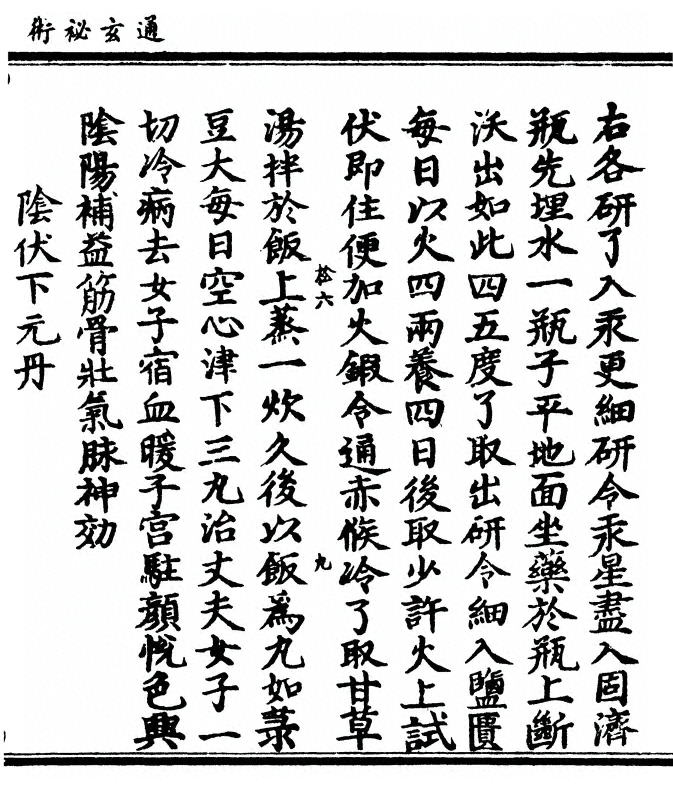 通玄祕術
右各研了入汞更細研令汞星盡入固濟
瓶先埋水一瓶子平地面坐藥於瓶上斷
沃出如此四五度了取出研令細入鹽匱
每日以火四兩養四日後取少許火上試
伏即住便加火鍛令通赤候冷了取甘草
湯拌於飯上蒸一炊久後以飯爲丸如菉
豆大每日空心津下三丸治丈夫女子一
切冷病去女子宿血暖子宮駐顏悅色興
陰陽補益筋骨壯氣脉神効
陰伏下元丹
松六
九